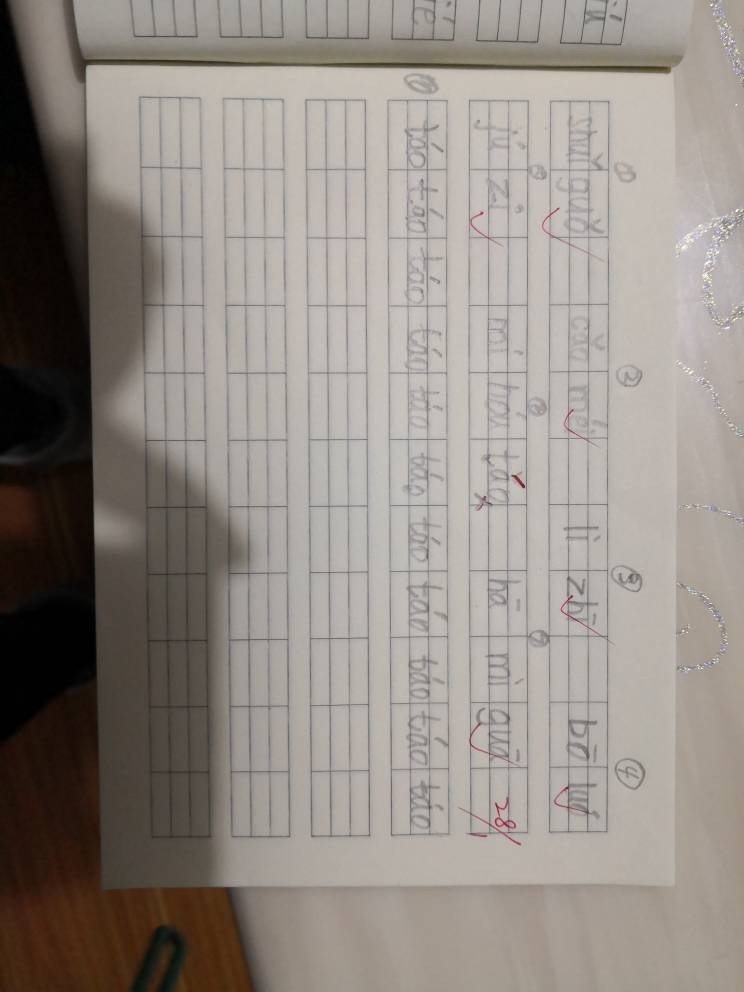 ① ② ③ ④
shuǐ guǒ cǎo méi lì zhī bō luó
jú zi mí hóu táo hā mì guā
① táo táo táo táo táo táo táo táo táo táo táo